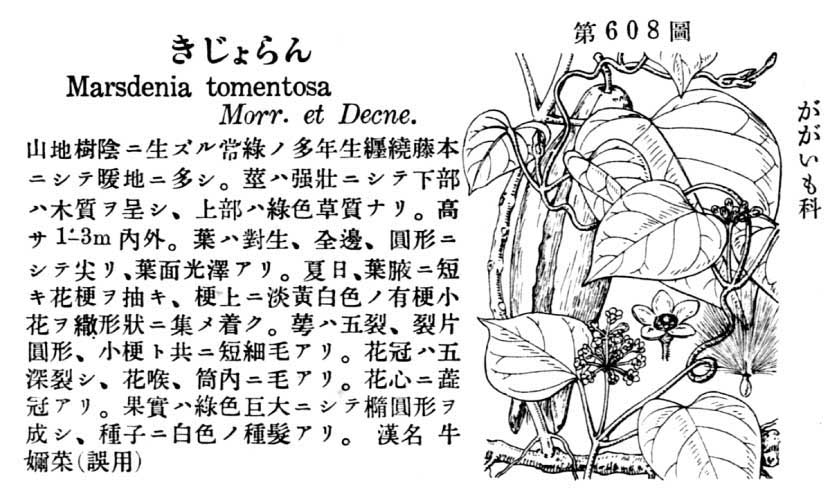 第608圖
ががいも科
きじょらん
Marsdenia tomentosa
Morr. et Decne.
山地樹陰ニ生ズル常綠ノ多年生纒繞藤本
ニシテ暖地ニ多シ。莖ハ强壯ニシテ下部
ハ木質ヲ呈シ、上部ハ綠色草質ナリ。高
サ 1-3m 內外。葉ハ對生、全邊、圓形ニ
シテ尖リ、葉面光澤アリ。夏日、葉腋ニ短
キ花梗ヲ抽キ、梗上ニ淡黃白色ノ有梗小
花ヲ繖形狀ニ集メ着ク。萼ハ五裂、裂片
圓形、小梗ト共ニ短細毛アリ。花冠ハ五
深裂シ、花喉、筒內ニ毛アリ。花心ニ蕋
冠アリ。果實ハ綠色巨大ニシテ橢圓形ヲ
成シ、種子ニ白色ノ種髮アリ。 漢名 牛
嬭菜(誤用)